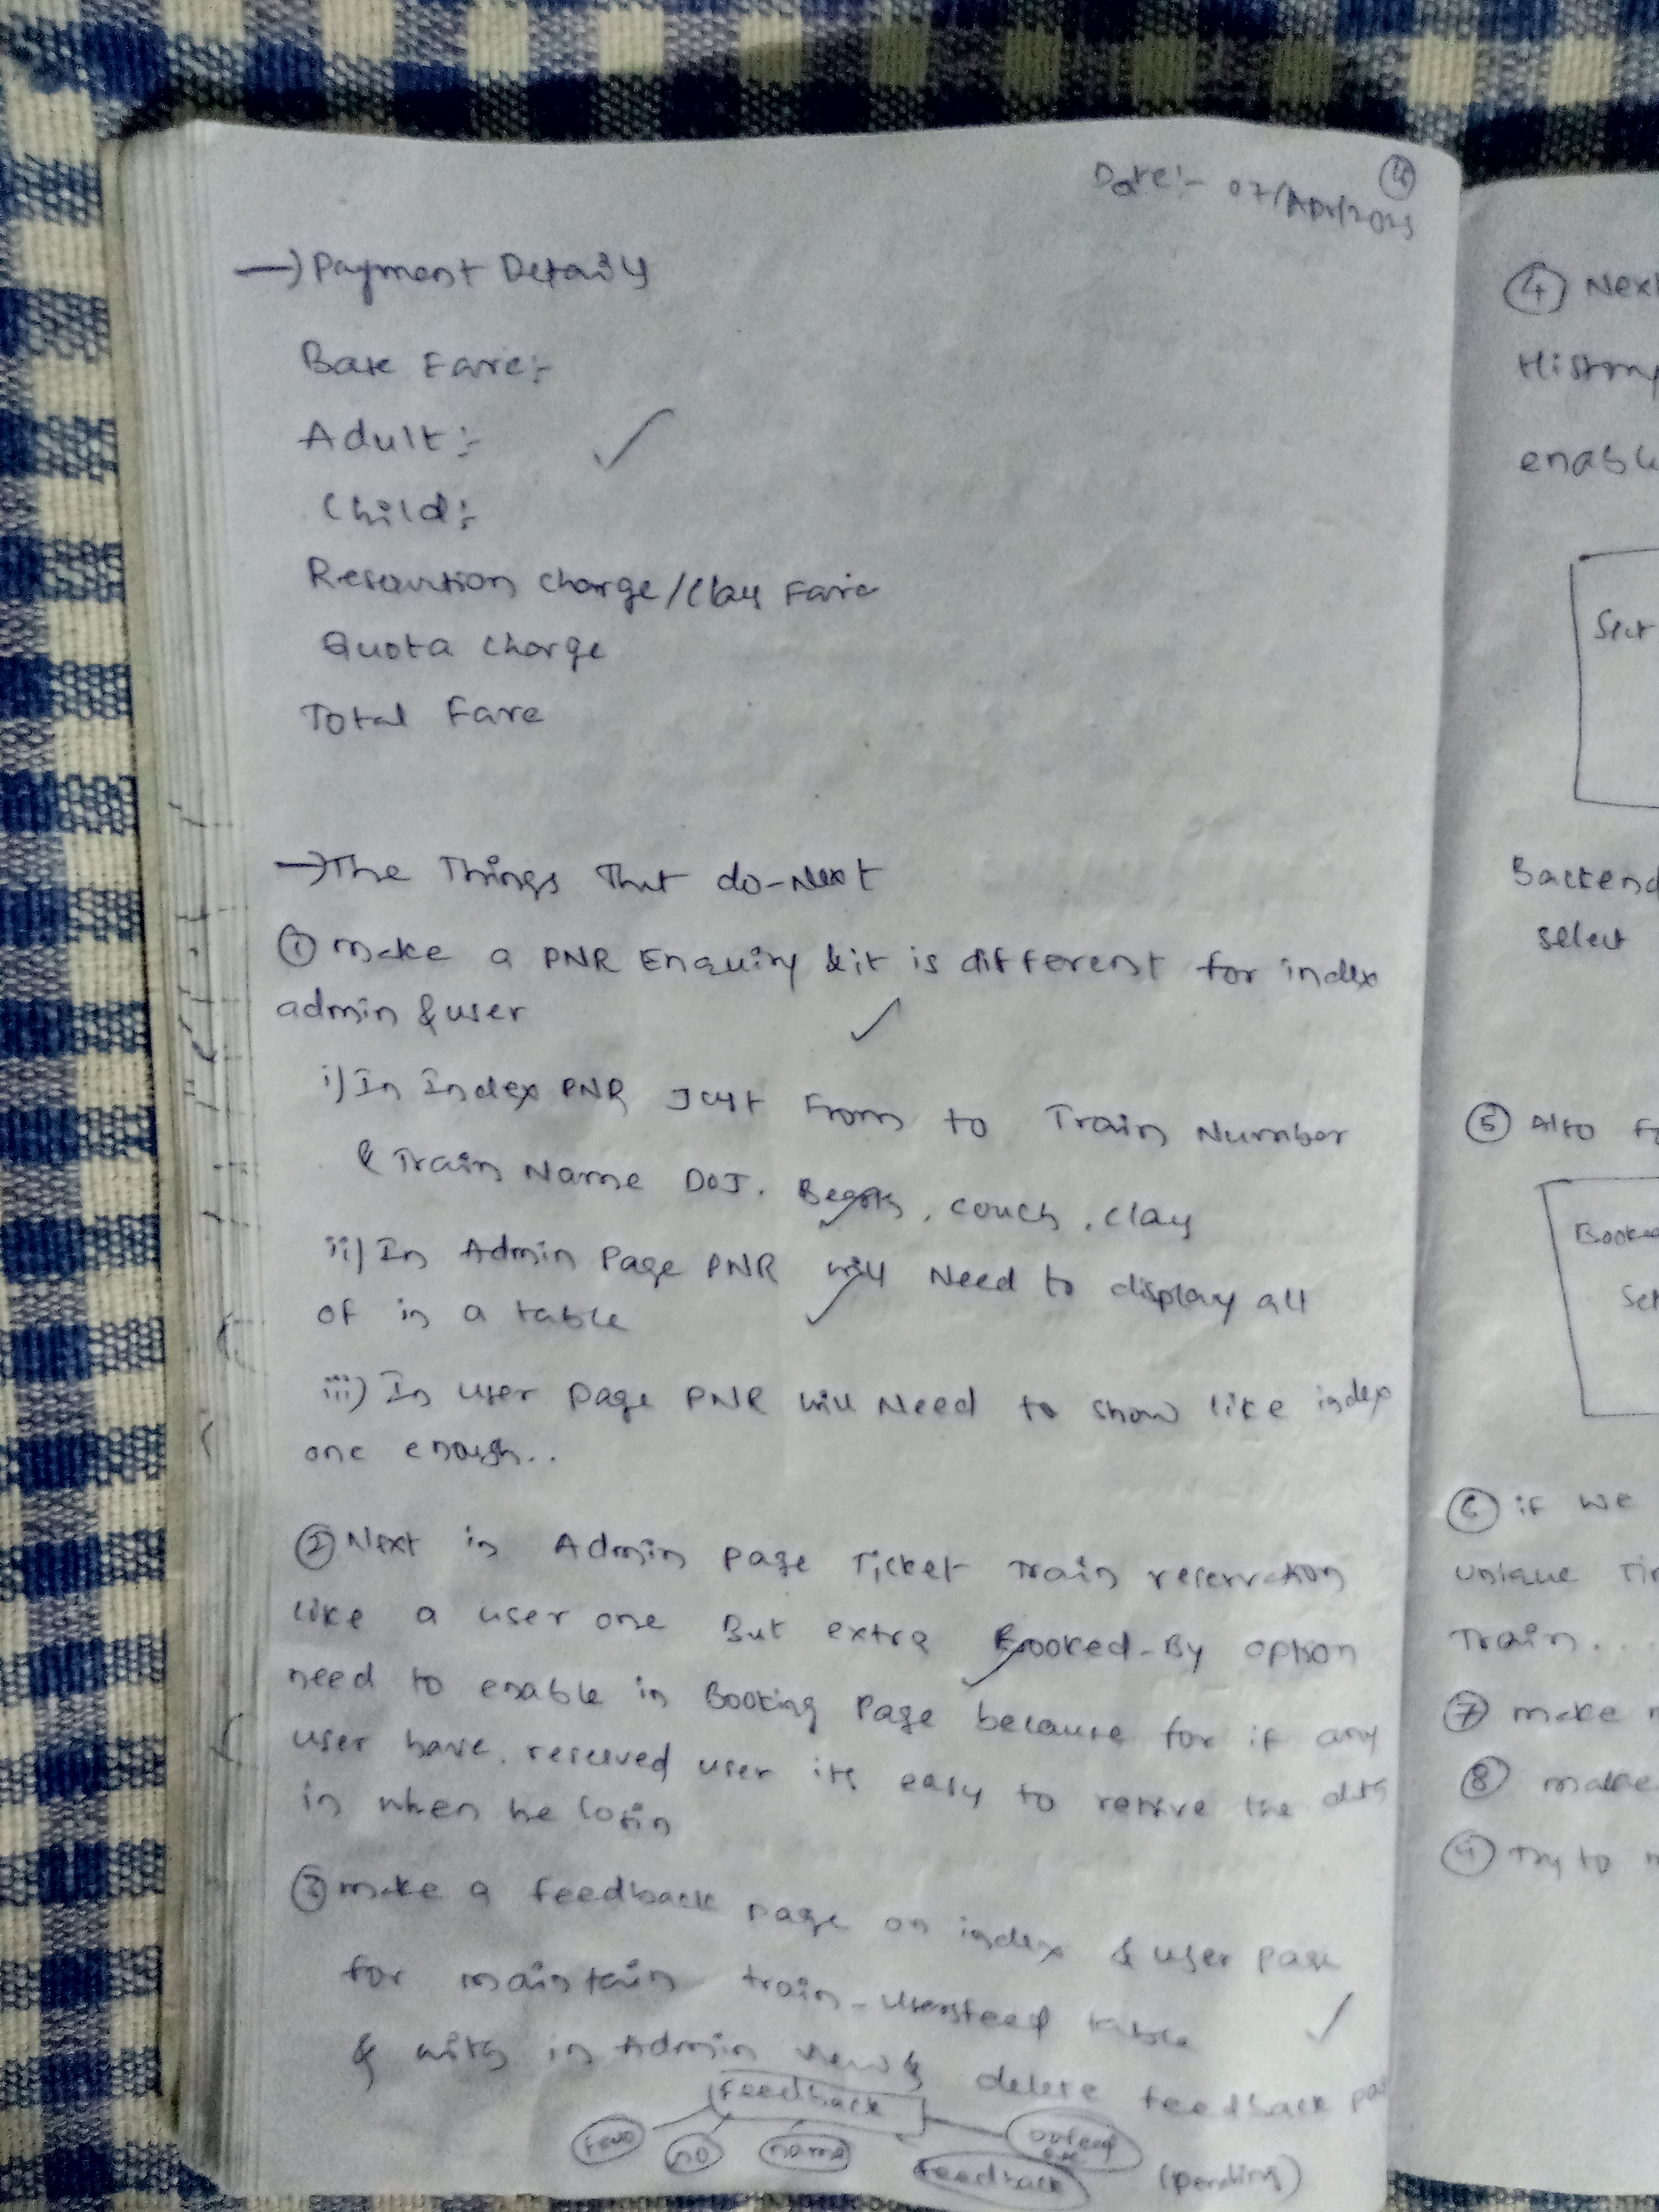 Date:- 07/Apr/2023
→ Payment Details
Base Fare:-
Adult:-
Child:-
Reservation charge/Class Fare
Quota charge
Total Fare
→ The Things That do-Next
① make a PNR Enquiry & it is different for index
admin & user
i) In Index PNR Just From to Train Number
& Train Name DOJ. , couch, class
ii) In Admin Page PNR will Need to display all
of in a table
iii) In user page PNR will Need to show like index
one enough..
② Next in Admin page Ticket Train reservation
like a user one But extra Booked-By option
need to enable in Booking Page because for if any
user have reserved user its easy to retrive the
in when he login
③ make a feedback page on index & user page
for maintain train-
& with in Admin view & delete feedback
Feedback
no
name
feedback
(pending)
④ Next
History
enable
Backend
select
⑤ Also
⑥ if we
unique
Train...
⑦ make
⑧ make
⑨ Try to